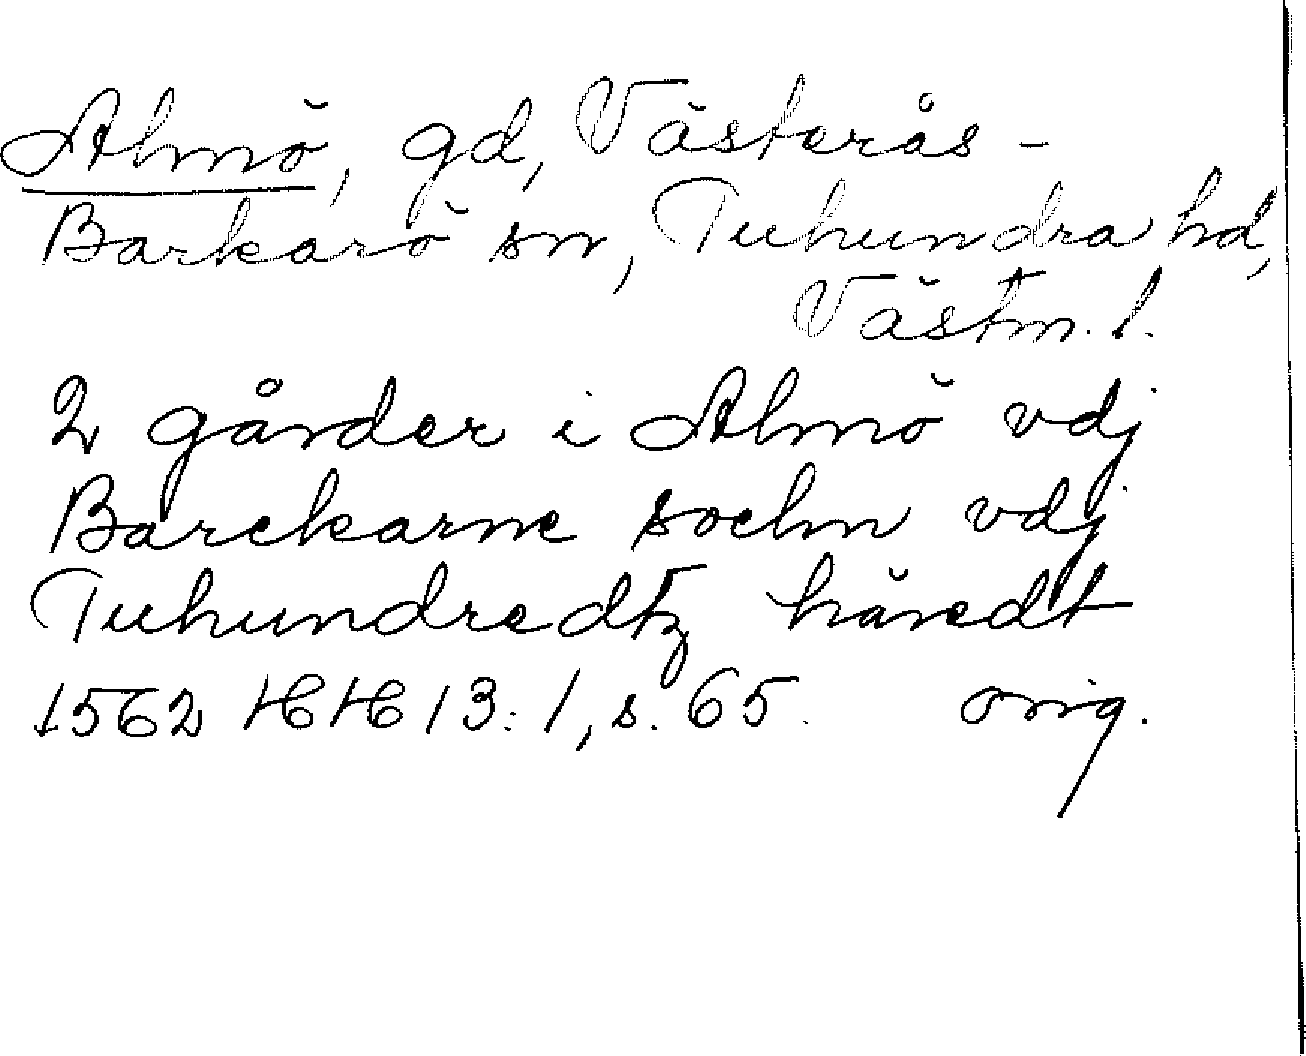 Almö, gd, Västerås-
Barkarö sn, Tuhundra hd,
Västm. l.
2 gårder i Almö vdj
Barekarne sochn vdj
Tuhundredtz häredt
1562 HH 13:1, s. 65. orig.